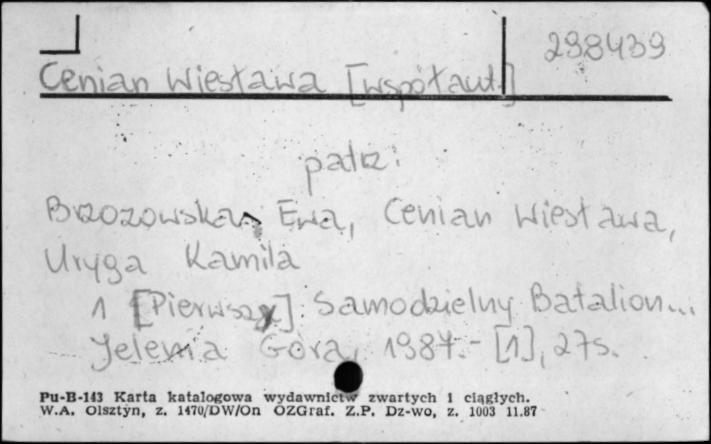 298439
Cenian Wiesława [współaut.]
patrz:
Brzozowska, Ewa, Cenian Wiesława,
Uryga Kamila
1 [Pierwszy] Samodzielny Batalion...
Jelenia Góra, 1987.- [1], 27s.
Pu-B-143 Karta katalogowa wydawnictw zwartych i ciągłych.
W.A. Olsztyn, z. 1470/DW/On OZGraf. Z.P. Dz-wo, z. 1003 11.87